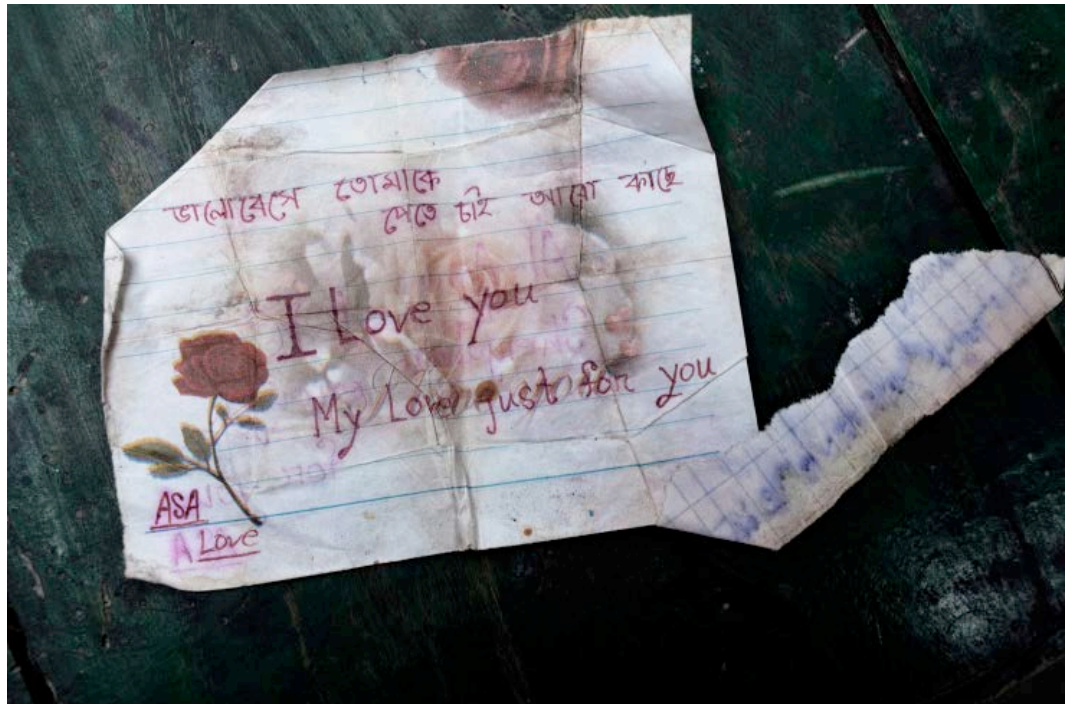 ভালোবেসে তোমাকে
পেতে চাই আরো কাছে
I Love you
My Love gust for you
ASA
A Love